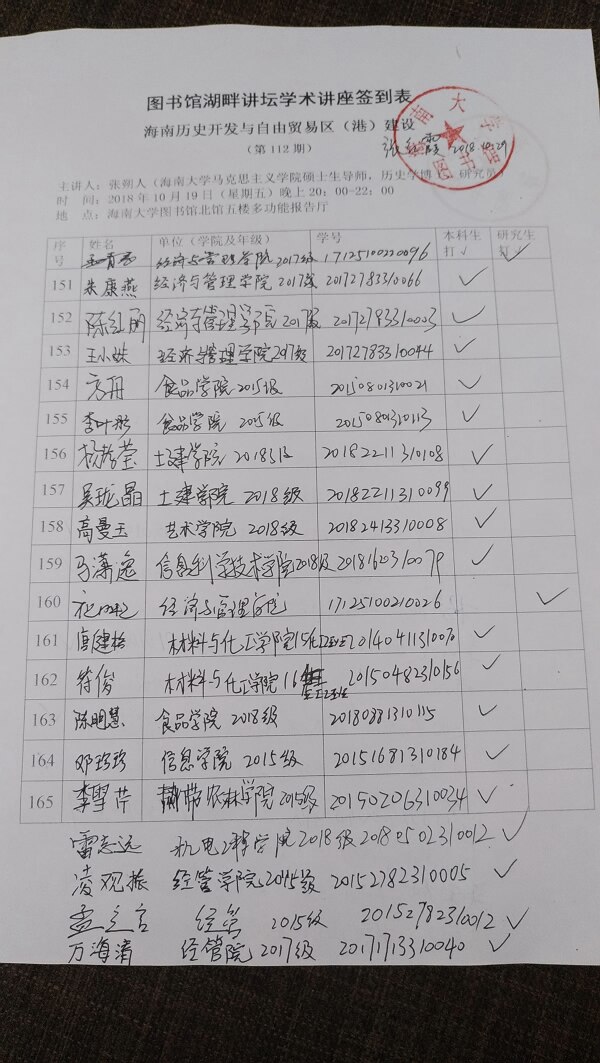 图书馆湖畔讲坛学术讲座签到表
海南历史开发与自由贸易区（港）建设
（第 112 期）
2018.10.29
主讲人：张朔人（海南大学马克思主义学院硕士生导师，历史学博士，研究员
时 间：2018 年 10 月 19 日（星期五）晚上 20：00-22：00
地 点：海南大学图书馆北馆五楼多功能报告厅
序号 姓名 单位（学院及年级） 学号 本科生打√ 研究生打√
经济与管理学院2017级 17125100220096 ✓
151 朱康燕 经济与管理学院2017级 20172783310066 ✓
152 陈红丽 经济与管理学院2017级 20172783310003 ✓
153 王小妹 经济与管理学院2017级 20172783310044 ✓
154 方舟 食品学院2015级 20150801310021 ✓
155 李叶彤 食品学院2015级 20150801310113 ✓
156 土建学院2018级 20182211310108 ✓
157 吴珑晶 土建学院2018级 20182211310099 ✓
158 高曼玉 艺术学院2018级 20182413310008 ✓
159 马潇逸 信息科学技术学院2018级 20181620310079 ✓
160 经济与管理学院 17125100210026 ✓
161 唐健 材料与化工学院15化工 20140411310070 ✓
162 符俊 材料与化工学院16 20150482310156 ✓
163 陈明慧 食品学院2018级 20180881310115 ✓
164 邓珍珍 信息学院2015级 20151681310184 ✓
165 李雪芹 农林学院2015级 20150206310034 ✓
雷志远 机电工程学院2018级 20180502310012 ✓
凌观振 经管学院2015级 20152782310005 ✓
孟立言 经管 2015级 20152782310012 ✓
万海清 经管院2017级 20171713310040 ✓